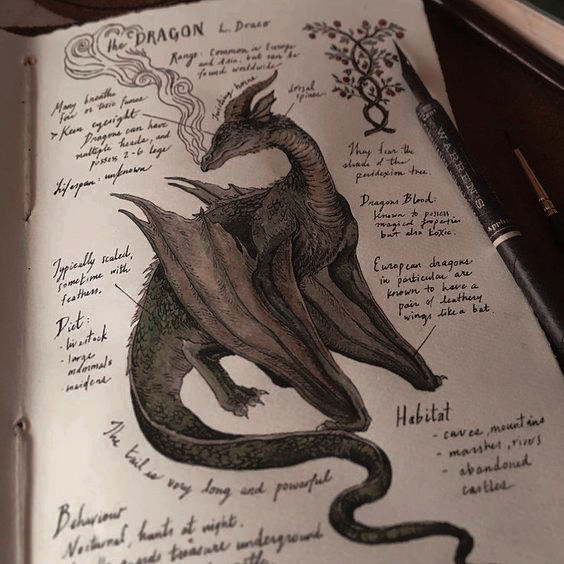 the DRAGON L. Draco
Range: Common in Europe
and Asia, but can be
found worldwide
Many breathe
fire or toxic fumes
> Keen eyesight
Dragons can have
multiple heads, and
possess 2-6 legs
Lifespan: unknown
horns
dorsal
spines
They fear the
shade of the
peridexion tree.
Dragons Blood:
known to possess
magical properties
but also toxic.
European dragons
in particular are
known to have a
pair of leathery
wings like a bat.
Typically scaled,
sometime with
feathers.
Diet:
- livestock
- large
mammals
- maidens
Habitat
- caves, mountains
- marshes, rivers
- abandoned
castles
The tail is very long and powerful
Behaviour
Nocturnal, hunts at night.
treasure underground
WARRENS